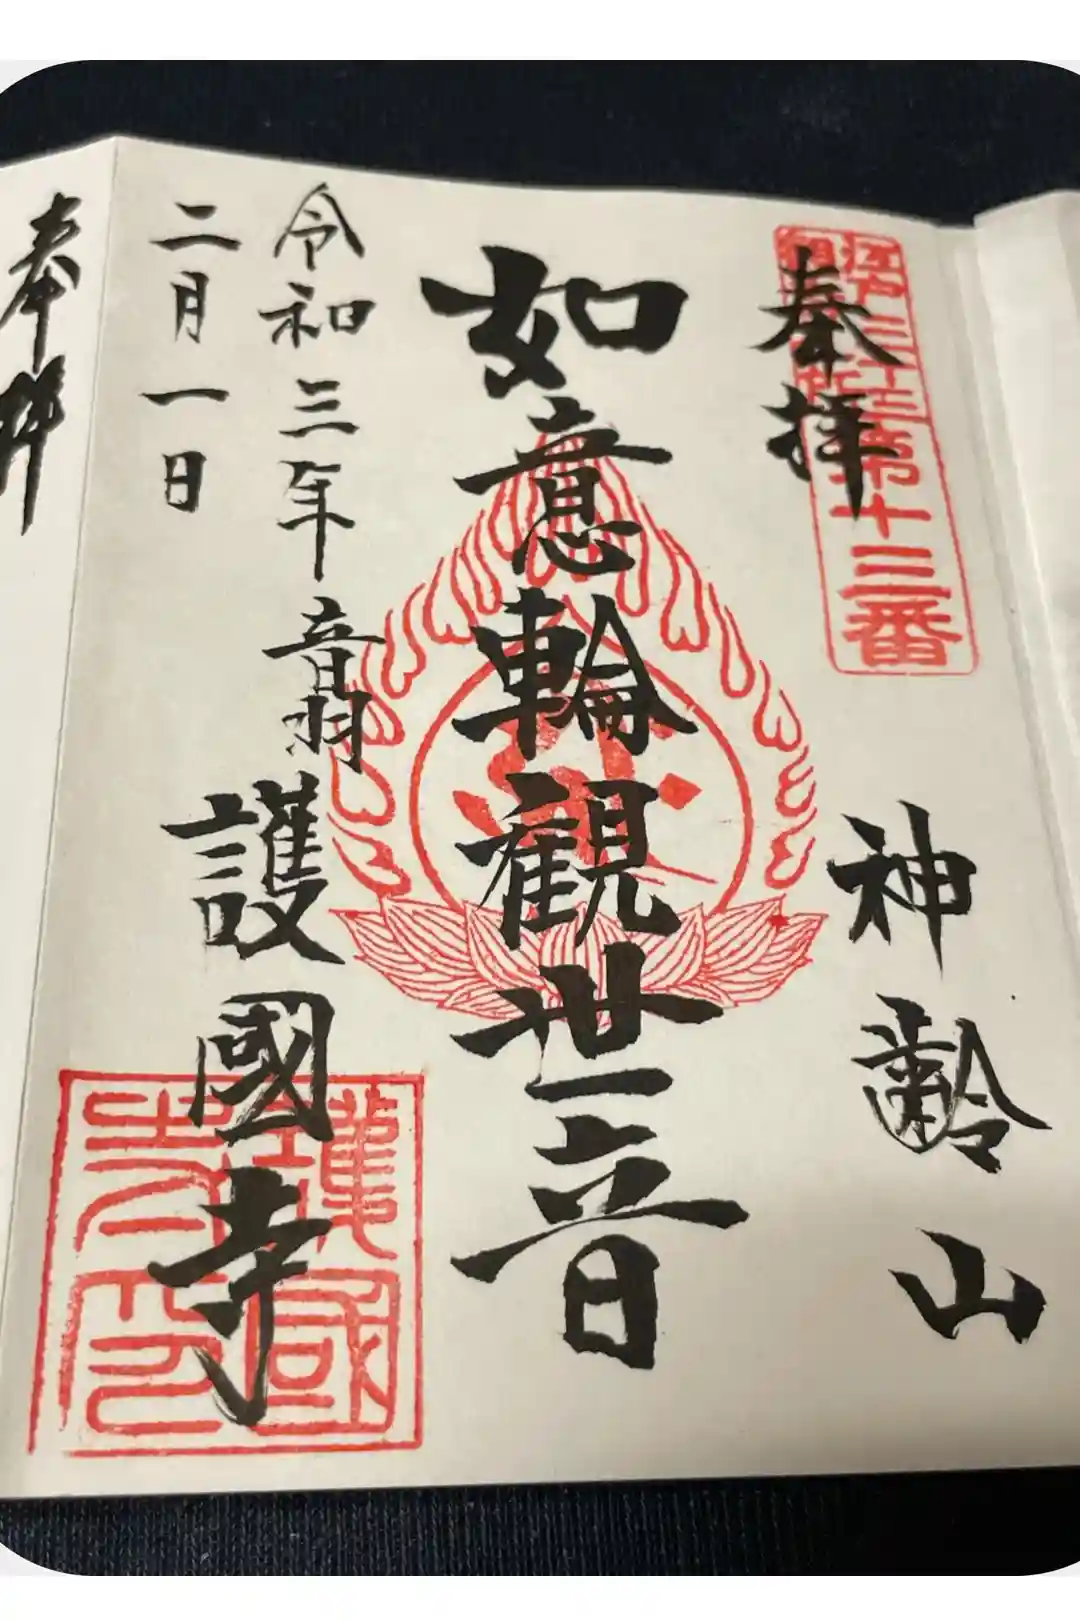 奉拝
江戸三十三
第十三番
神齢山
如意輪観世音
令和三年
二月一日
音羽
護國寺
護國
寺印
奉拝